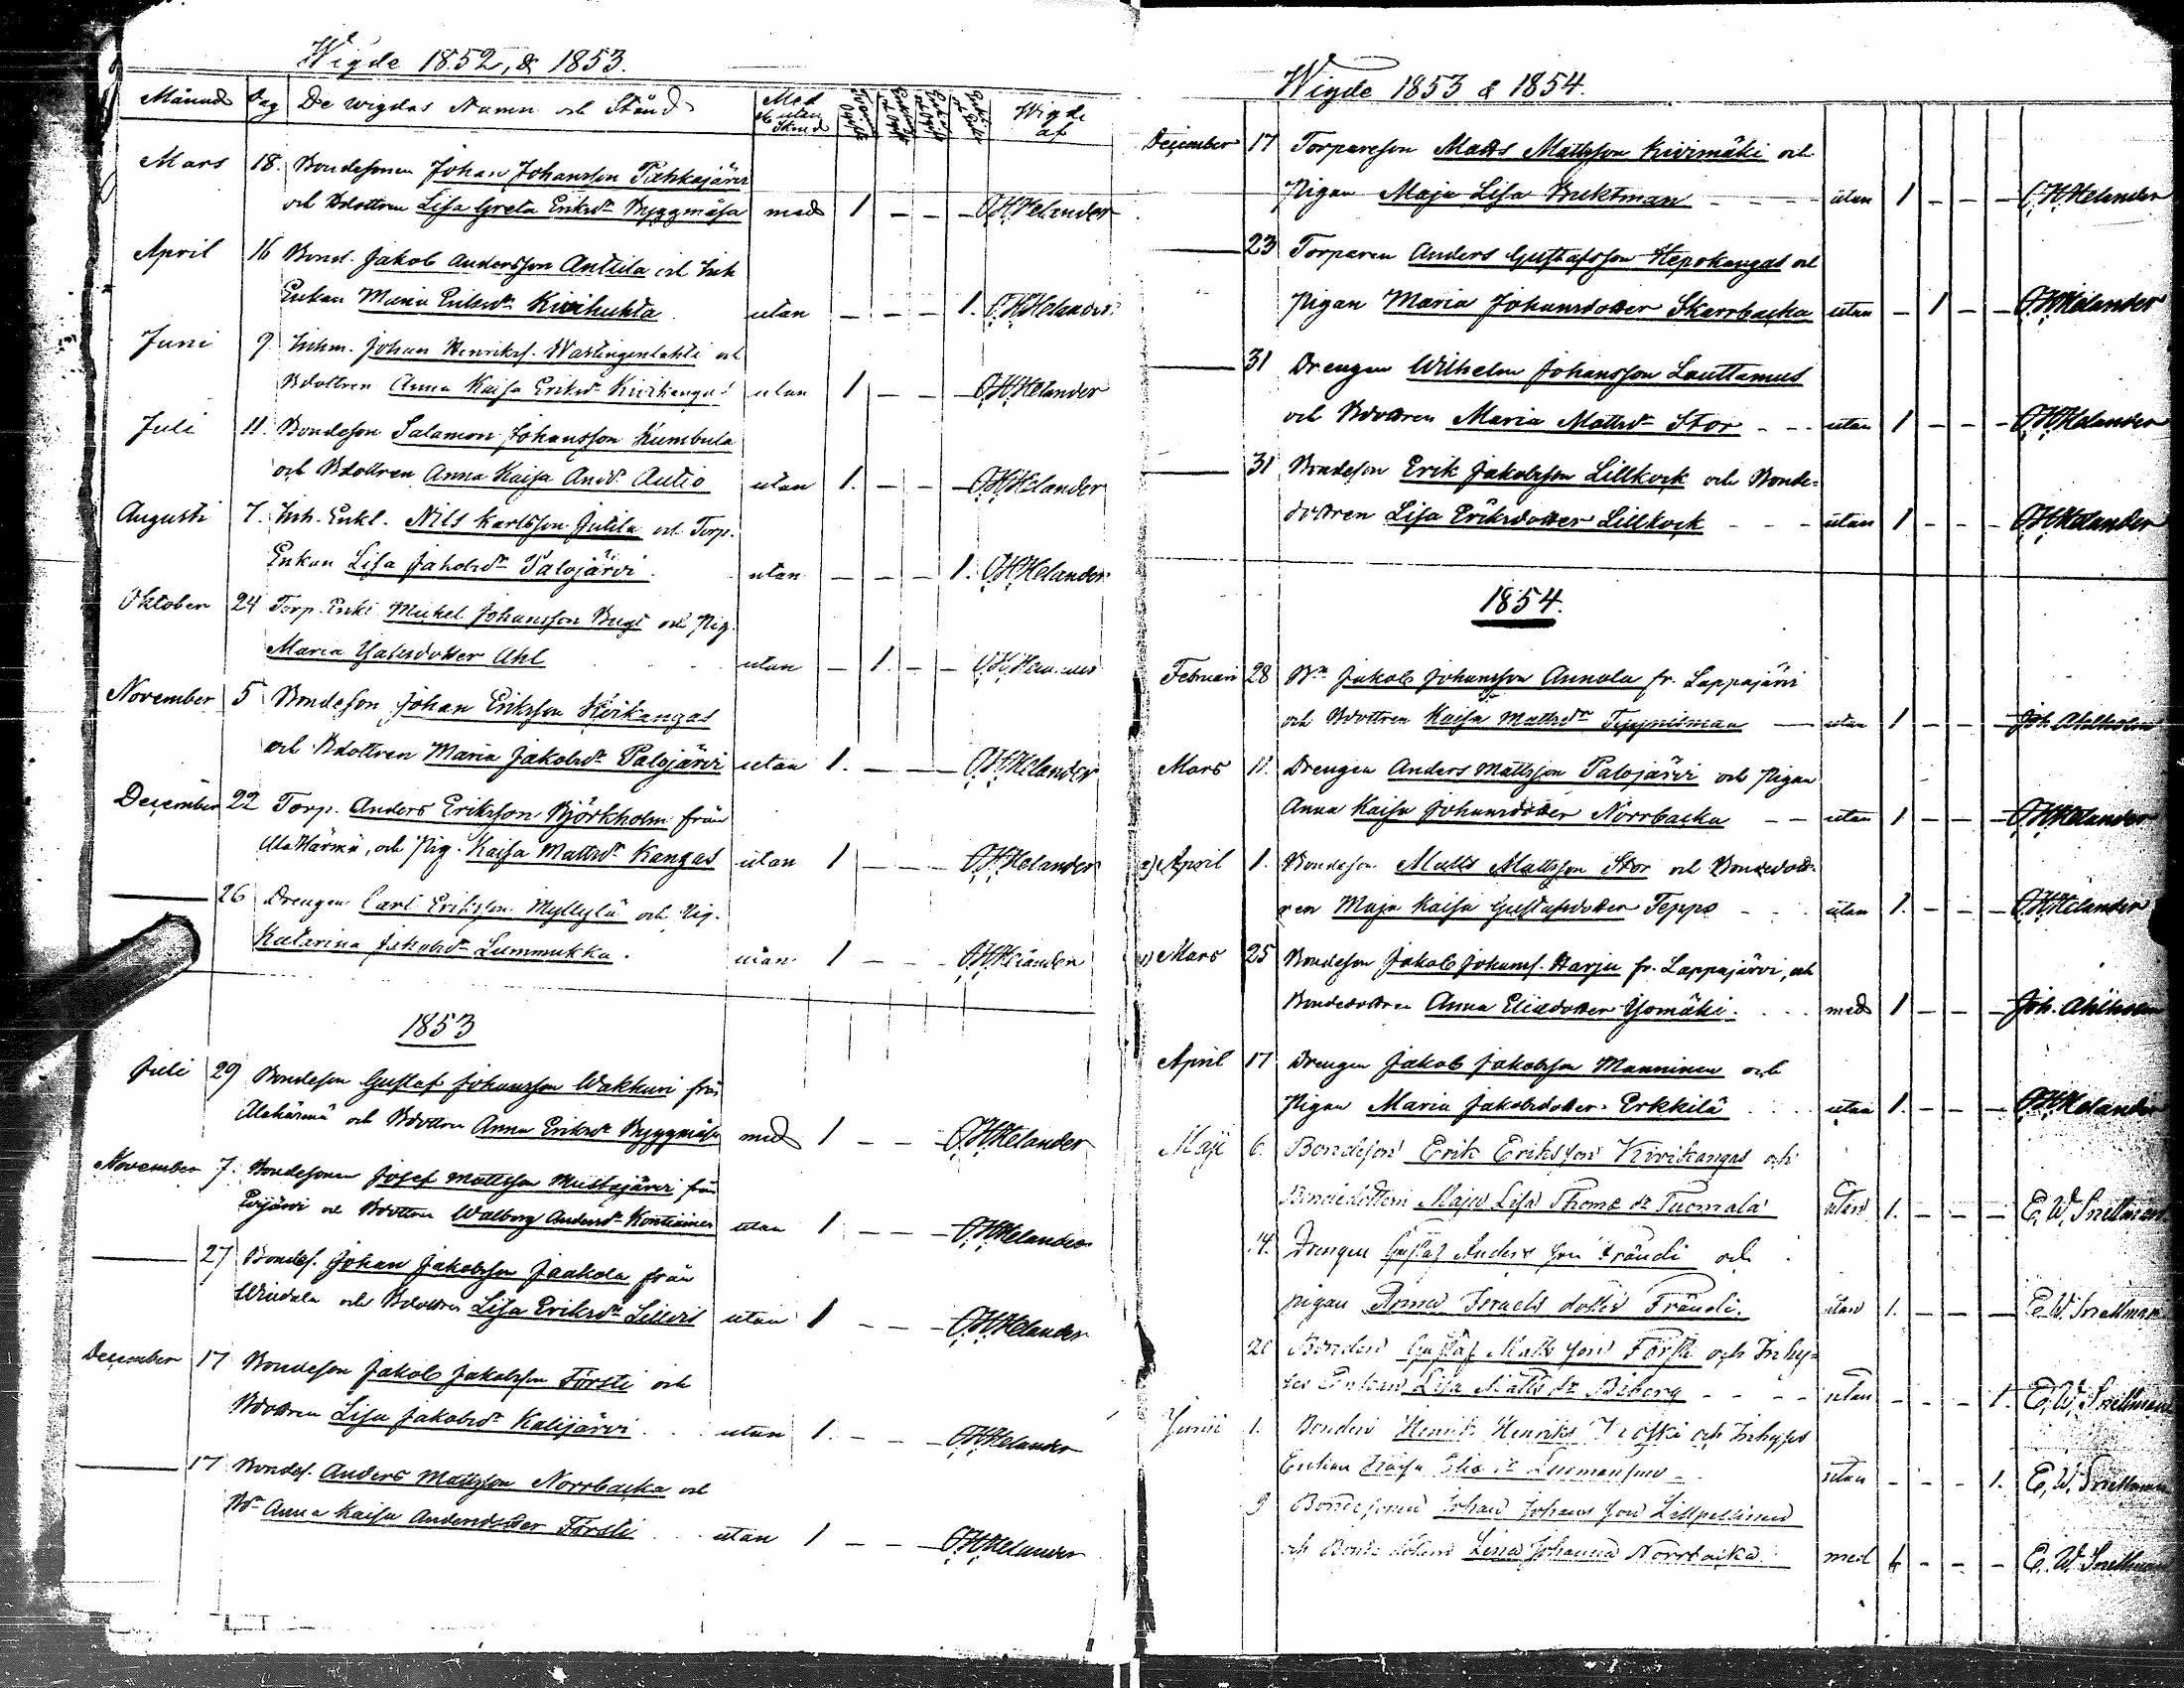 Wigde 1852, & 1853.
Månad Dag De wigdas Namn och Stånd Med el. utan Skrud Wigde af
Mars 18. Bondesonen Johan Johansson Pahkajärvi
och Bdottren Lisa Greta Eriksdr Byggmäsa med 1 - - - O.H.Helander
April 16 Bond. Jakob Andersson Antila och Inh
Enkan Maria Eriksdr Kivihuhta utan - - - 1. O.H.Helander
Juni 9 Inhm. Johan Henrikss. Wartingenlahti och
Bdottren Anna Kaisa Eriksdr Kivikangas utan 1 - - - O.H.Helander
Juli 11. Bondeson Salamon Johansson Kumbula
och Bdottren Anna Kaisa Andr Autio utan 1. - - - O.H.Helander
Augusti 7. Inh. Enkl. Nils Karlsson Jutila och Torp.
Enkan Lisa Jakobsdr Palojärvi. utan - - - 1. O.H.Helander
Oktober 24 Torp. Enkl Mickel Johansson Bugt och Pig.
Maria Jakobsdotter Ahl utan - 1. - - O.H.Helander
November 5 Bondeson Johan Eriksson Kivikangas
och Bdottren Maria Jakobsdr Palojärvi utan 1. - - - O.H.Helander
December 22 Torp. Anders Eriksson Björkholm från
Ala Härmä, och Pig. Kaisa Mattsdr Kangas utan 1 - - - O.H.Helander
26 Drengen Carl Eriksson Myllylä och Pig.
Katarina Jakobsdr Lummukka. utan 1 - - - O.H.Helander
1853
Juli 29 Bondeson Gustaf Johansson Wakkuri från
Alahärmä och Bdottren Anna Eriksdr Byggmäsa med 1 - - - O.H.Helander
November 7. Bondesonen Josef Mattsson Mustajärvi från
Evijärvi och Bdottren Walborg Andersdr Kontiainen utan 1 - - - O.H.Helander
27 Bondes. Johan Jakobsson Jaakola från
Windala och Bdottren Lisa Eriksdr Sillers utan 1 - - - O.H.Helander
December 17 Bondeson Jakob Jakobsson Försti och
Bdottren Lisa Jakobsdr Kalijärvi. utan 1. - - - O.H.Helander
17 Bondes. Anders Mattsson Norrbacka och
Bdr Anna Kaisa Andersdotter Försti utan 1 - - - O.H.Helander
Wigde 1853 & 1854.
December 17 Torpareson Matts Mattsson Kivimäki och
Pigan Maja Lisa Bucktman utan 1 - - - O.H.Helander
23 Torparen Anders Gustafsson Hepokangas och
Pigan Maria Johansdotter Skarrbacka utan - 1 - - O.H.Helander
31 Drengen Wilhelm Johansson Lauttamus
och Bdottren Maria Mattsdr Stor - - utan 1 - - - O.H.Helander
31 Bondeson Erik Jakobsson Lillkock och Bonde-
dottren Lisa Eriksdotter Lillkock - - - utan 1 - - - O.H.Helander
1854.
Februari 28 Bn Jakob Johansson Annala fr. Lappajärvi
och Bdottren Kaisa Mattsdr Tyynismaa - utan 1 - - - Joh. Ahlholm
Mars 11. Drengen Anders Mattsson Palojärvi och Pigan
Anna Kaisa Johansdotter Norrbacka - - utan 1 - - - O.H.Helander
2) April 1. Bondeson Matts Mattsson Stor och Bondedott-
ren Maja Kaisa Gustafsdotter Teppo - - - utan 1. - - - O.H.Helander
1) Mars 25 Bondeson Jakob Johanss. Harju fr. Lappajärvi, och
Bondedottren Anna Eliedotter Yomäki. med 1 - - - Joh. Ahlholm
April 17 Drengen Jakob Jakobsson Manninen och
Pigan Maria Jakobsdotter Erkkilä utan 1. - - - O.H.Helander
Maji 6. Bondeson Erik Eriksson Kivikangas och
Bondedottren Maja Lisa Thomæ dr Tuomala utan 1. - - - E. W. Snellman
14. Drengen Gustaf Anders son Frändi och
pigan Anna Israels dotter Frändi. utan 1. - - - E. W. Snellman
20 Bonden Gustaf Matts son Först och Inhy-
ses Enkan Lisa Matts dr Biberg - - - - utan - - - 1. E. W. Snellman
Junii 1. Bonden Henrik Henriks och Inhyses
Enkan Kaisa Elis dr utan - - - 1. E. W. Snellman
9 Bondesonen Johan Johans son Lillpellinen
och Bonde dottren Lena Johanna Norrbacka. med 1 - - - E. W. Snellman